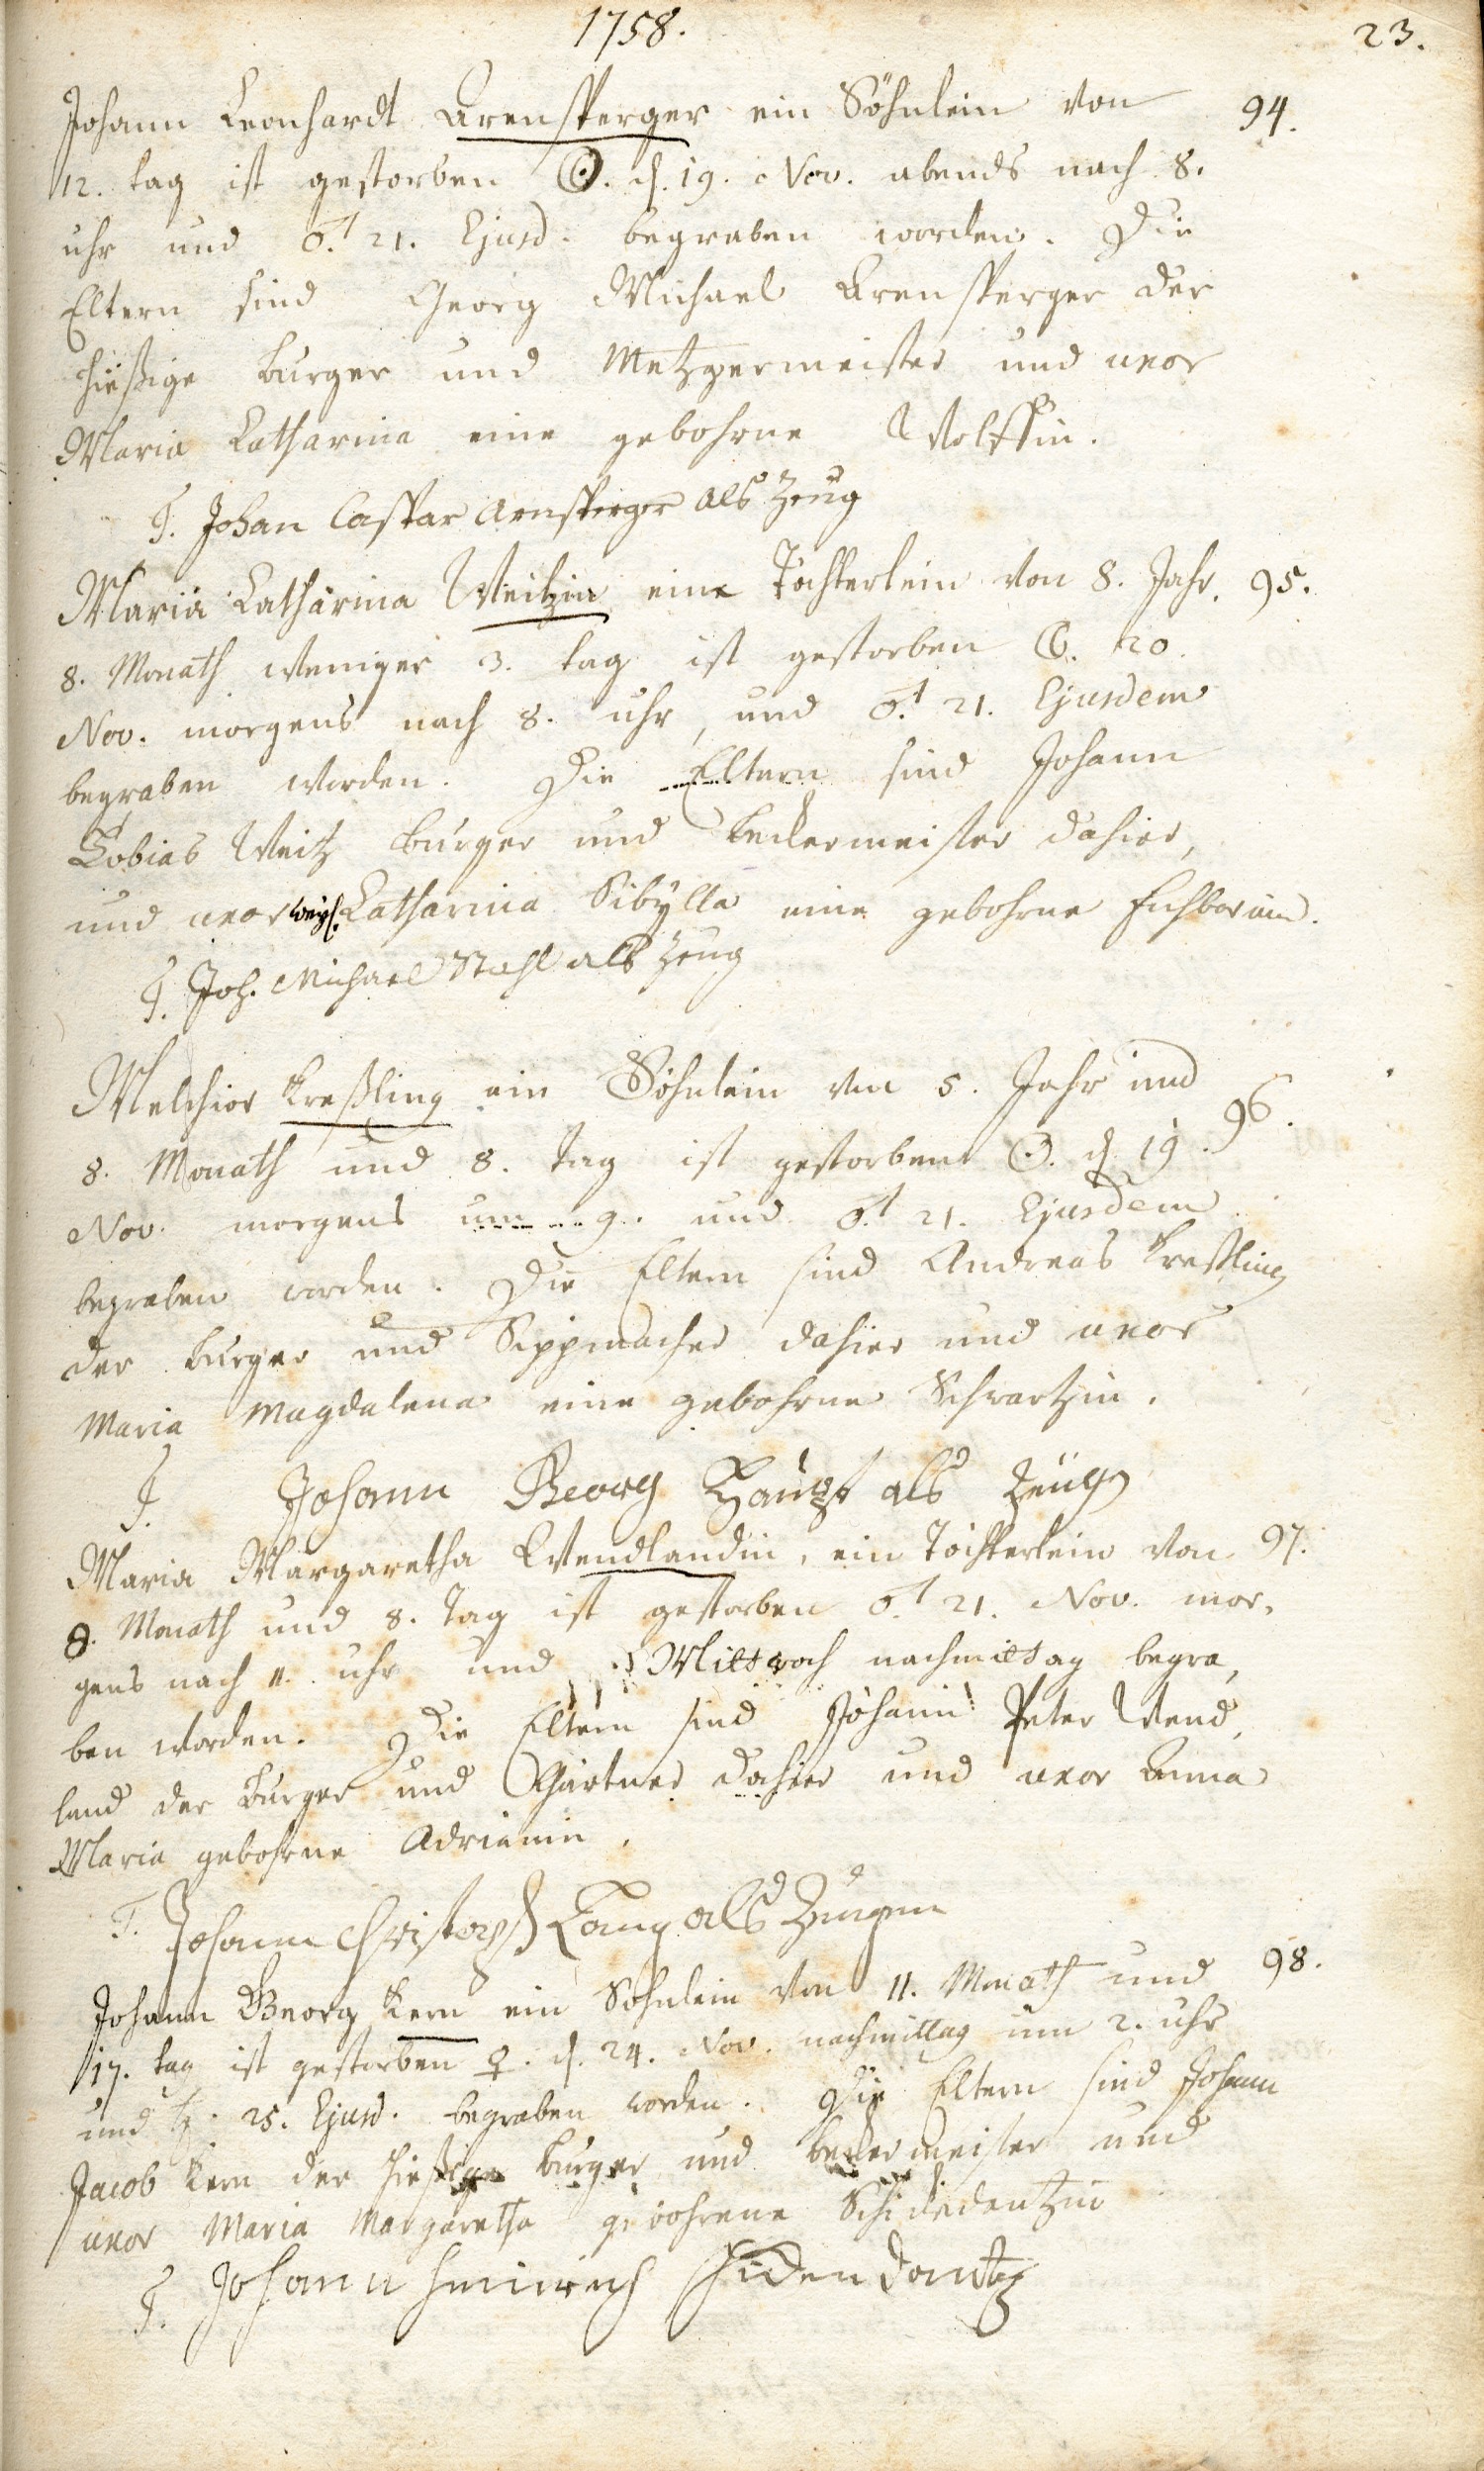 1758.
23.
Johann Leonhardt Arensperger ein Söhnlein von 94.
12. tag ist gestorben ☉. d. 19. Nov. abends nach 8.
uhr und ♂. 21. Ejusd. begraben worden. Die
Eltern sind Georg Michael Arensperger der
hießige burger und Metzgermeister und uxor
Maria Catharina eine gebohrne Wolffin.
T. Johan Caspar Arnsperger als Zeug
Maria Catharina Weitzin eine Töchterlein von 8. Jahr. 95.
8. Monath weniger 3. tag ist gestorben ☾. 20.
Nov. morgens nach 8. uhr, und ♂. 21. Ejusdem
begraben worden. Die Eltern sind Johann
Tobias Weitz burger und beckermeister dahier,
und uxor weyl. Catharina Sibylla eine gebohrne
T. Joh. Michael Stahl als Zeug
Melchior Kreßling ein Söhnlein von 5. Jahr und
8. Monath und 8. tag ist gestorben ☉. d. 19. 96.
Nov. morgens um 9. und ♂. 21. Ejusdem
begraben worden. Die Eltern sind Andreas Kreßling
der burger und Sippmacher dahier und uxor
Maria Magdalena eine gebohrne Schwartzin.
T. Johann Georg Haupt als Zeug
Maria Margaretha Wendlandin, ein Töchterlein von 97.
8. Monath und 8. Tag ist gestorben ♂. 21. Nov. mor,
gens nach 11. uhr und Mittwoch nachmittag begra,
ben worden. Die Eltern sind Johann Peter Wend,
land der burger und Gärtner dahier und uxor Anna
Maria gebohrne Adrianin.
T. Johann Christoph Lang als Zeugen
Johann Georg Kern ein Söhnlein von 11. Monath und 98.
17. tag ist gestorben ♀. d. 24. Nov. nachmittag um 2. uhr
und ♄. 25. Ejusd. begraben worden. Die Eltern sind Johann
Jacob Kern der hießige burger und beckermeister und
uxor Maria Margaretha gebohrene Schidedentzin
T. Johann Heinrich Schidendantz